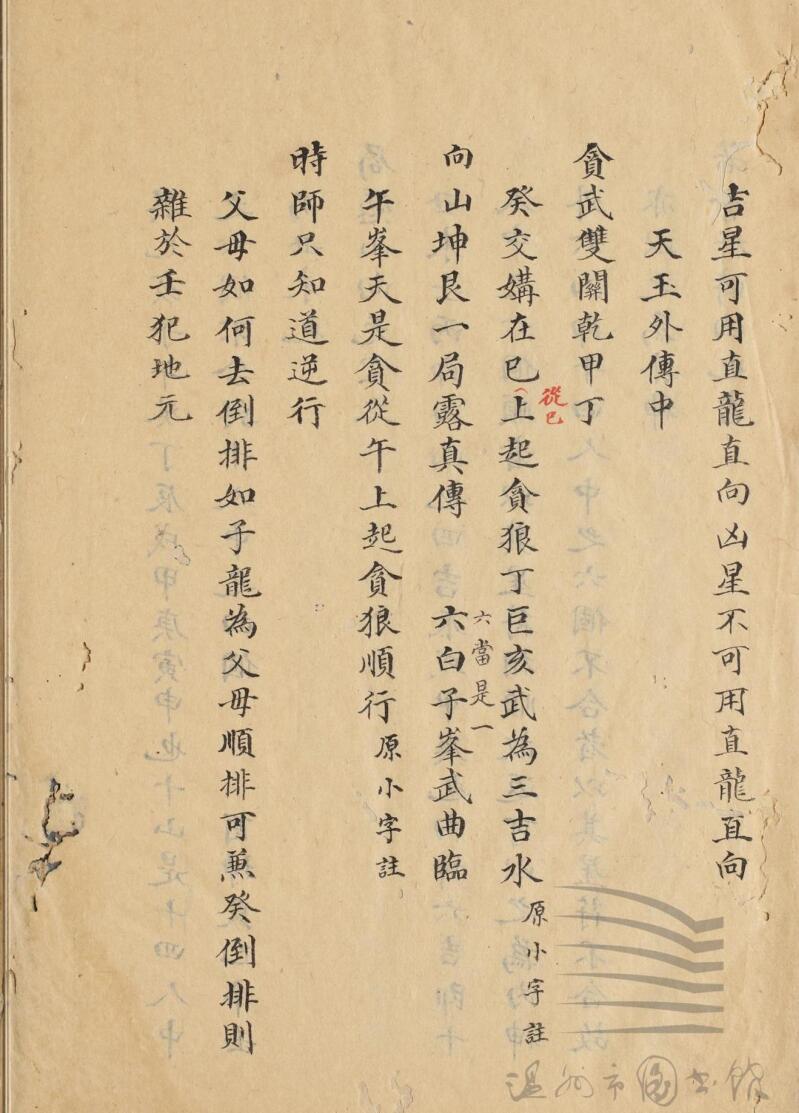 吉星可用直龍直向凶星不可用直龍直向
天玉外傳中
貪武雙關乾甲丁
癸交媾在巳上起貪狼丁巨亥武為三吉水原小字註
從巳
六當是一
向山坤艮一局露真傳 六白子峯武曲臨
午峯天是貪從午上起貪狼順行原小字註
時師只知道逆行
父母如何去倒排如子龍為父母順排可兼癸倒排則
雜於壬犯地元
温州市圖書館